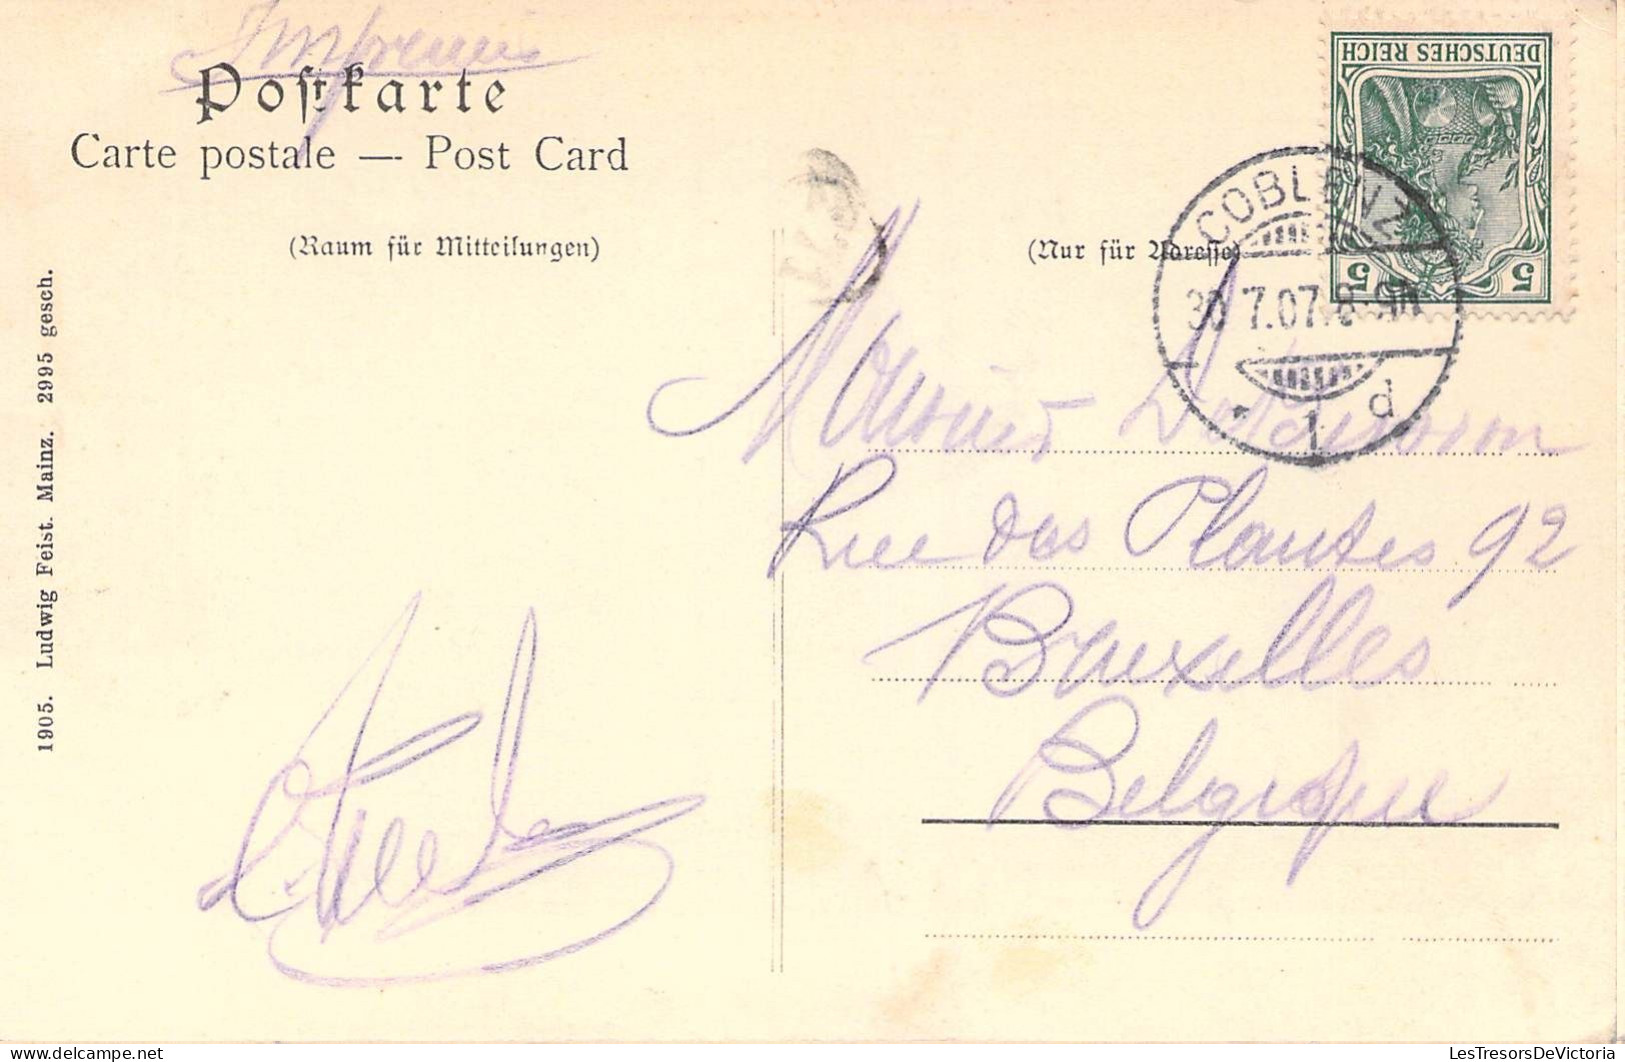 Imprimé
Postkarte
Carte postale — Post Card
(Raum für Mitteilungen)
(Nur für Adresse)
DEUTSCHES REICH
5 5
COBLENZ
30 7.07. 8-9N
* 1 d
Monsieur
Rue des Plantes 92
Bruxelles
Belgique
1905. Ludwig Feist. Mainz. 2995 gesch.
delcampe.net
LesTresorsDeVictoria